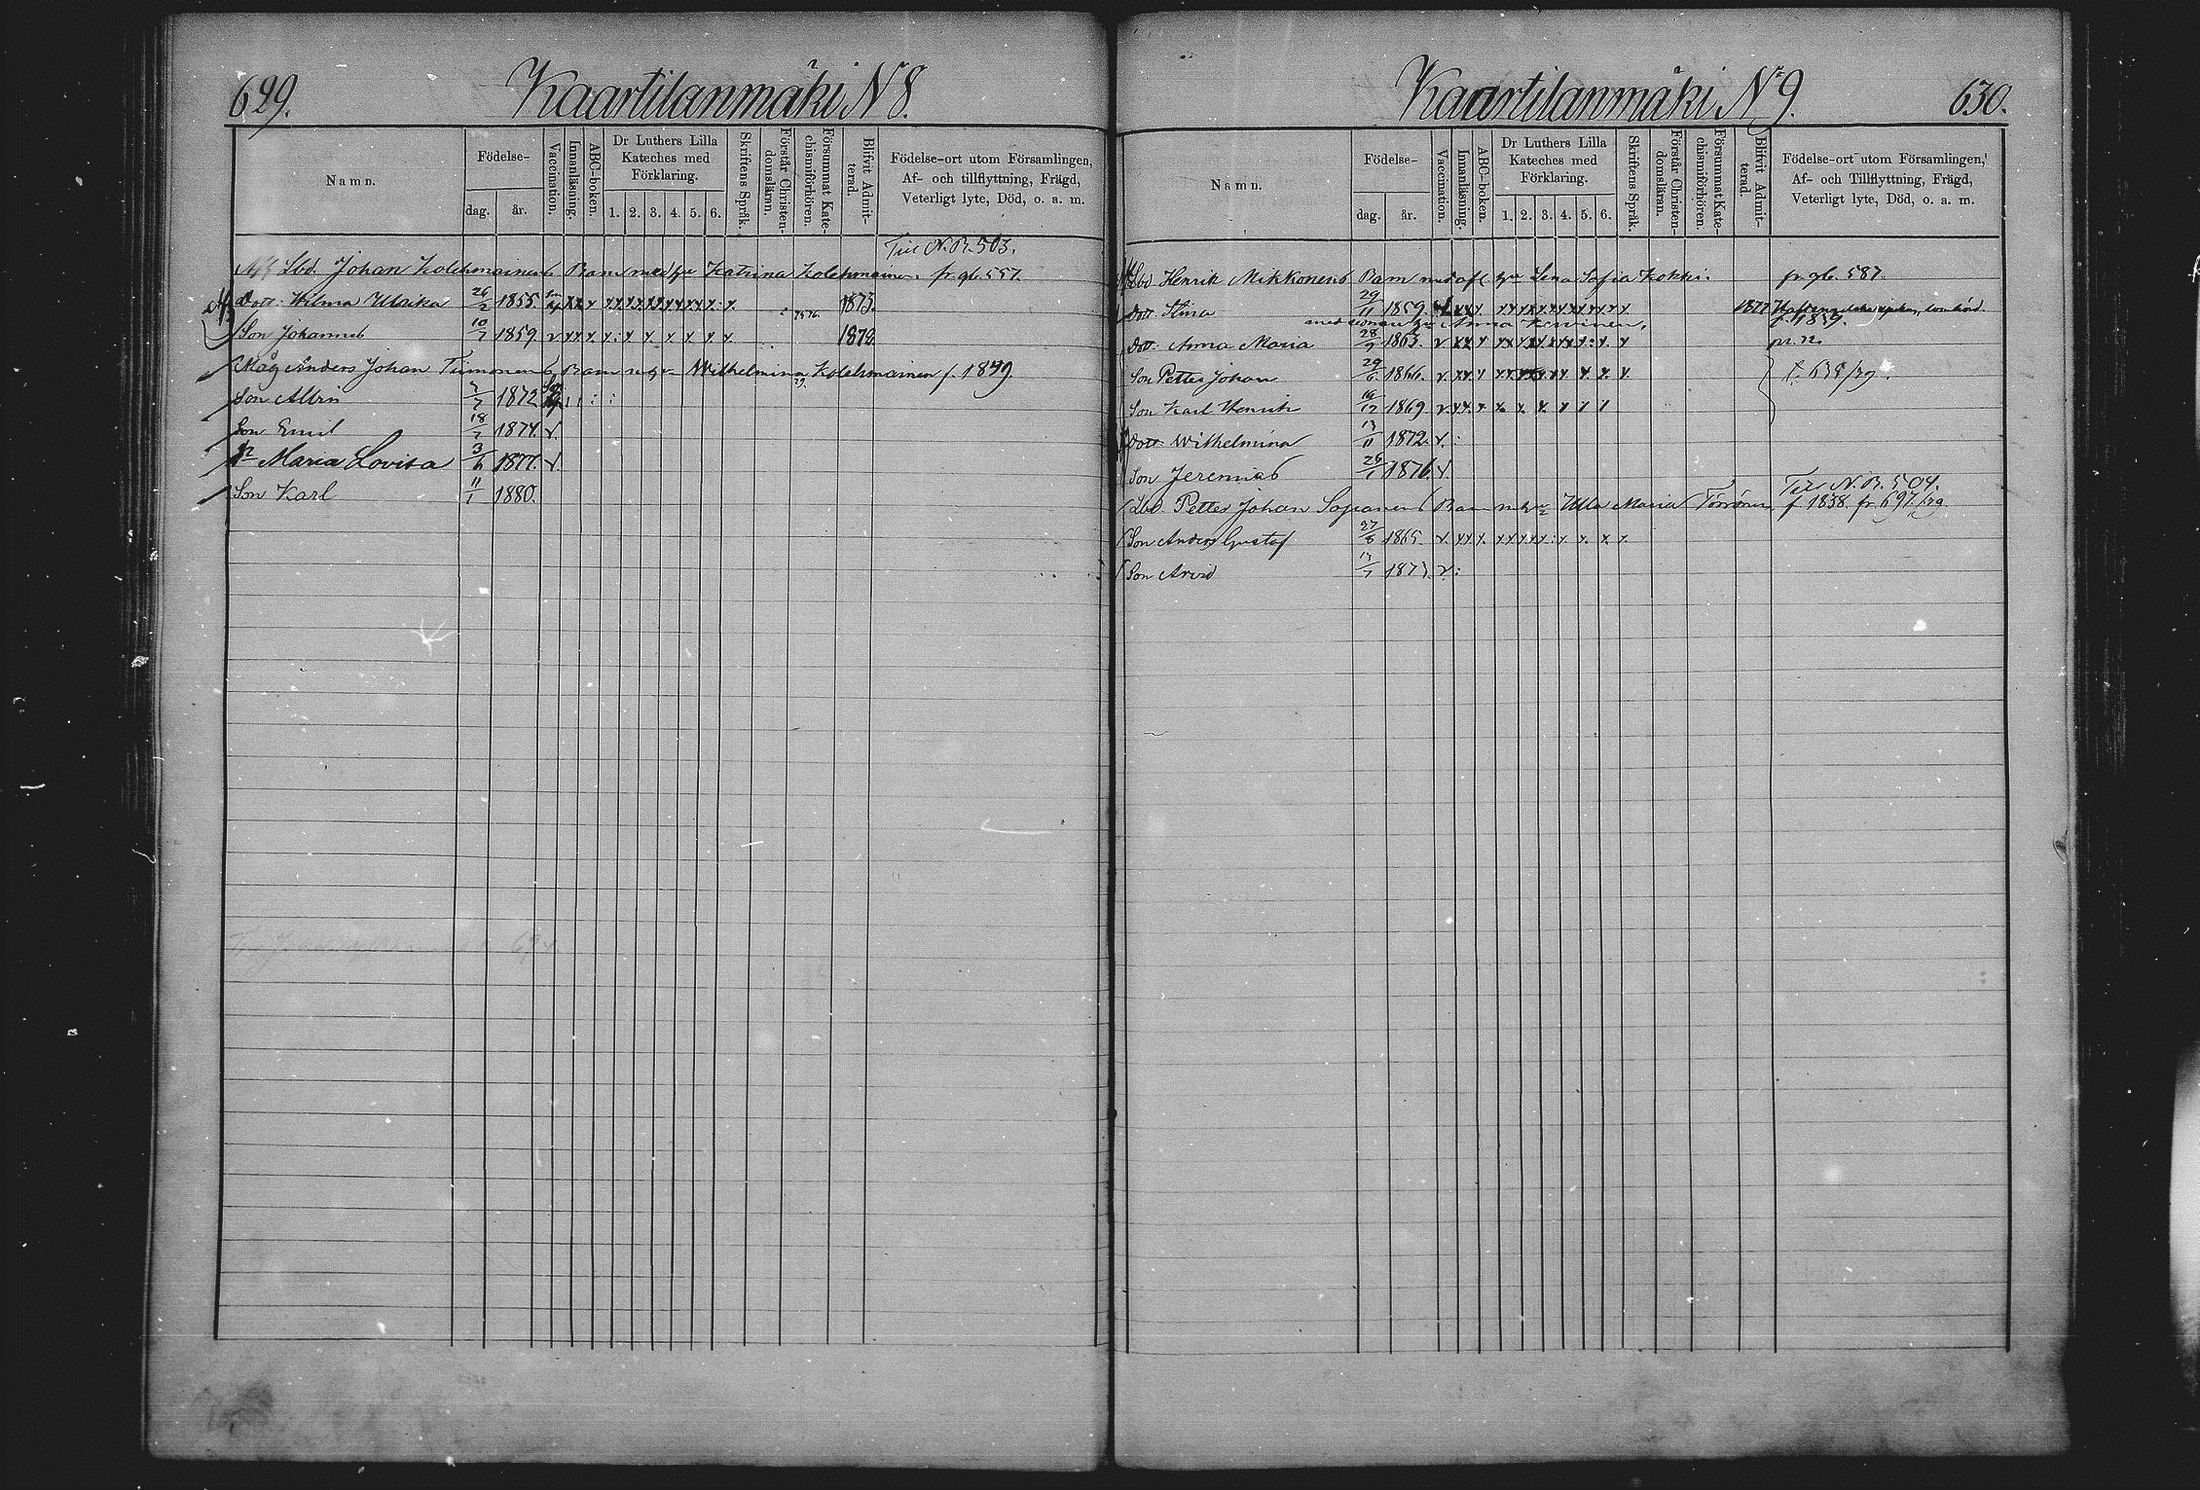 629.
Kaartilanmäki N 8.
Namn.
Födelse-
dag.
år.
Vaccination.
Innanläsning.
ABC-boken.
Dr Luthers Lilla
Kateches med
Förklaring.
1. 2. 3. 4. 5. 6.
Skriftens Språk.
Förstår Christen-
domsläran.
Försummat Kate-
chismiförhören.
Blifvit Admit-
terad.
Födelse-ort utom Församlingen,
Af- och tillflyttning, Frägd,
Veterligt lyte, Död, o. a. m.
Till N. B. 503.
Lbd. Johan Kolehmainens Barn med hu Katrina Kolehmainen. fr. gb. 557.
Dott. Wilma Ulrika 26/2 1855. 1873.
Son Johannes 10/7 1859. 1879
Måg Anders Johan Timonens Barn m. hu Wilhelmina Kolehmainen f. 1849.
Son Albin 7/7 1872
Son Emil 18/7 1874.
Maria Lovisa 3/6 1877.
Son Karl 11/1 1880.
Kaartilanmäki N 9.
630.
Namn.
Födelse-
dag.
år.
Vaccination.
Innanläsning.
ABC-boken.
Dr Luthers Lilla
Kateches med
Förklaring.
1. 2. 3. 4. 5. 6.
Skriftens Språk.
Förstår Christen-
domsläran.
Försummat Kate-
chismiförhören.
Blifvit Admit-
terad.
Födelse-ort utom Församlingen,
Af- och Tillflyttning, Frägd,
Veterligt lyte, Död, o. a. m.
Lbd Henrik Mikkonens Barn med afl hu Lena Sofia Kokki. fr. gb. 587.
Dott. Stina 29/11 1859. 1877
Anna f. 1839.
Dott. Anna Maria 28/9 1863.
Son Petter Johan 29/6 1866. 635/79.
Son Karl Henrik 1869
Dott Wilhelmina 13/11 1872
Son Jeremias 26/1 1876
Till N. B. 504.
Lbd. Petter Johan Sopanens Barn m. hu Ulla Maria Törrönen f 1838. fr 697/79
Son Anders Gustaf 27/8 1865.
Son Arvid 13/7 1873.